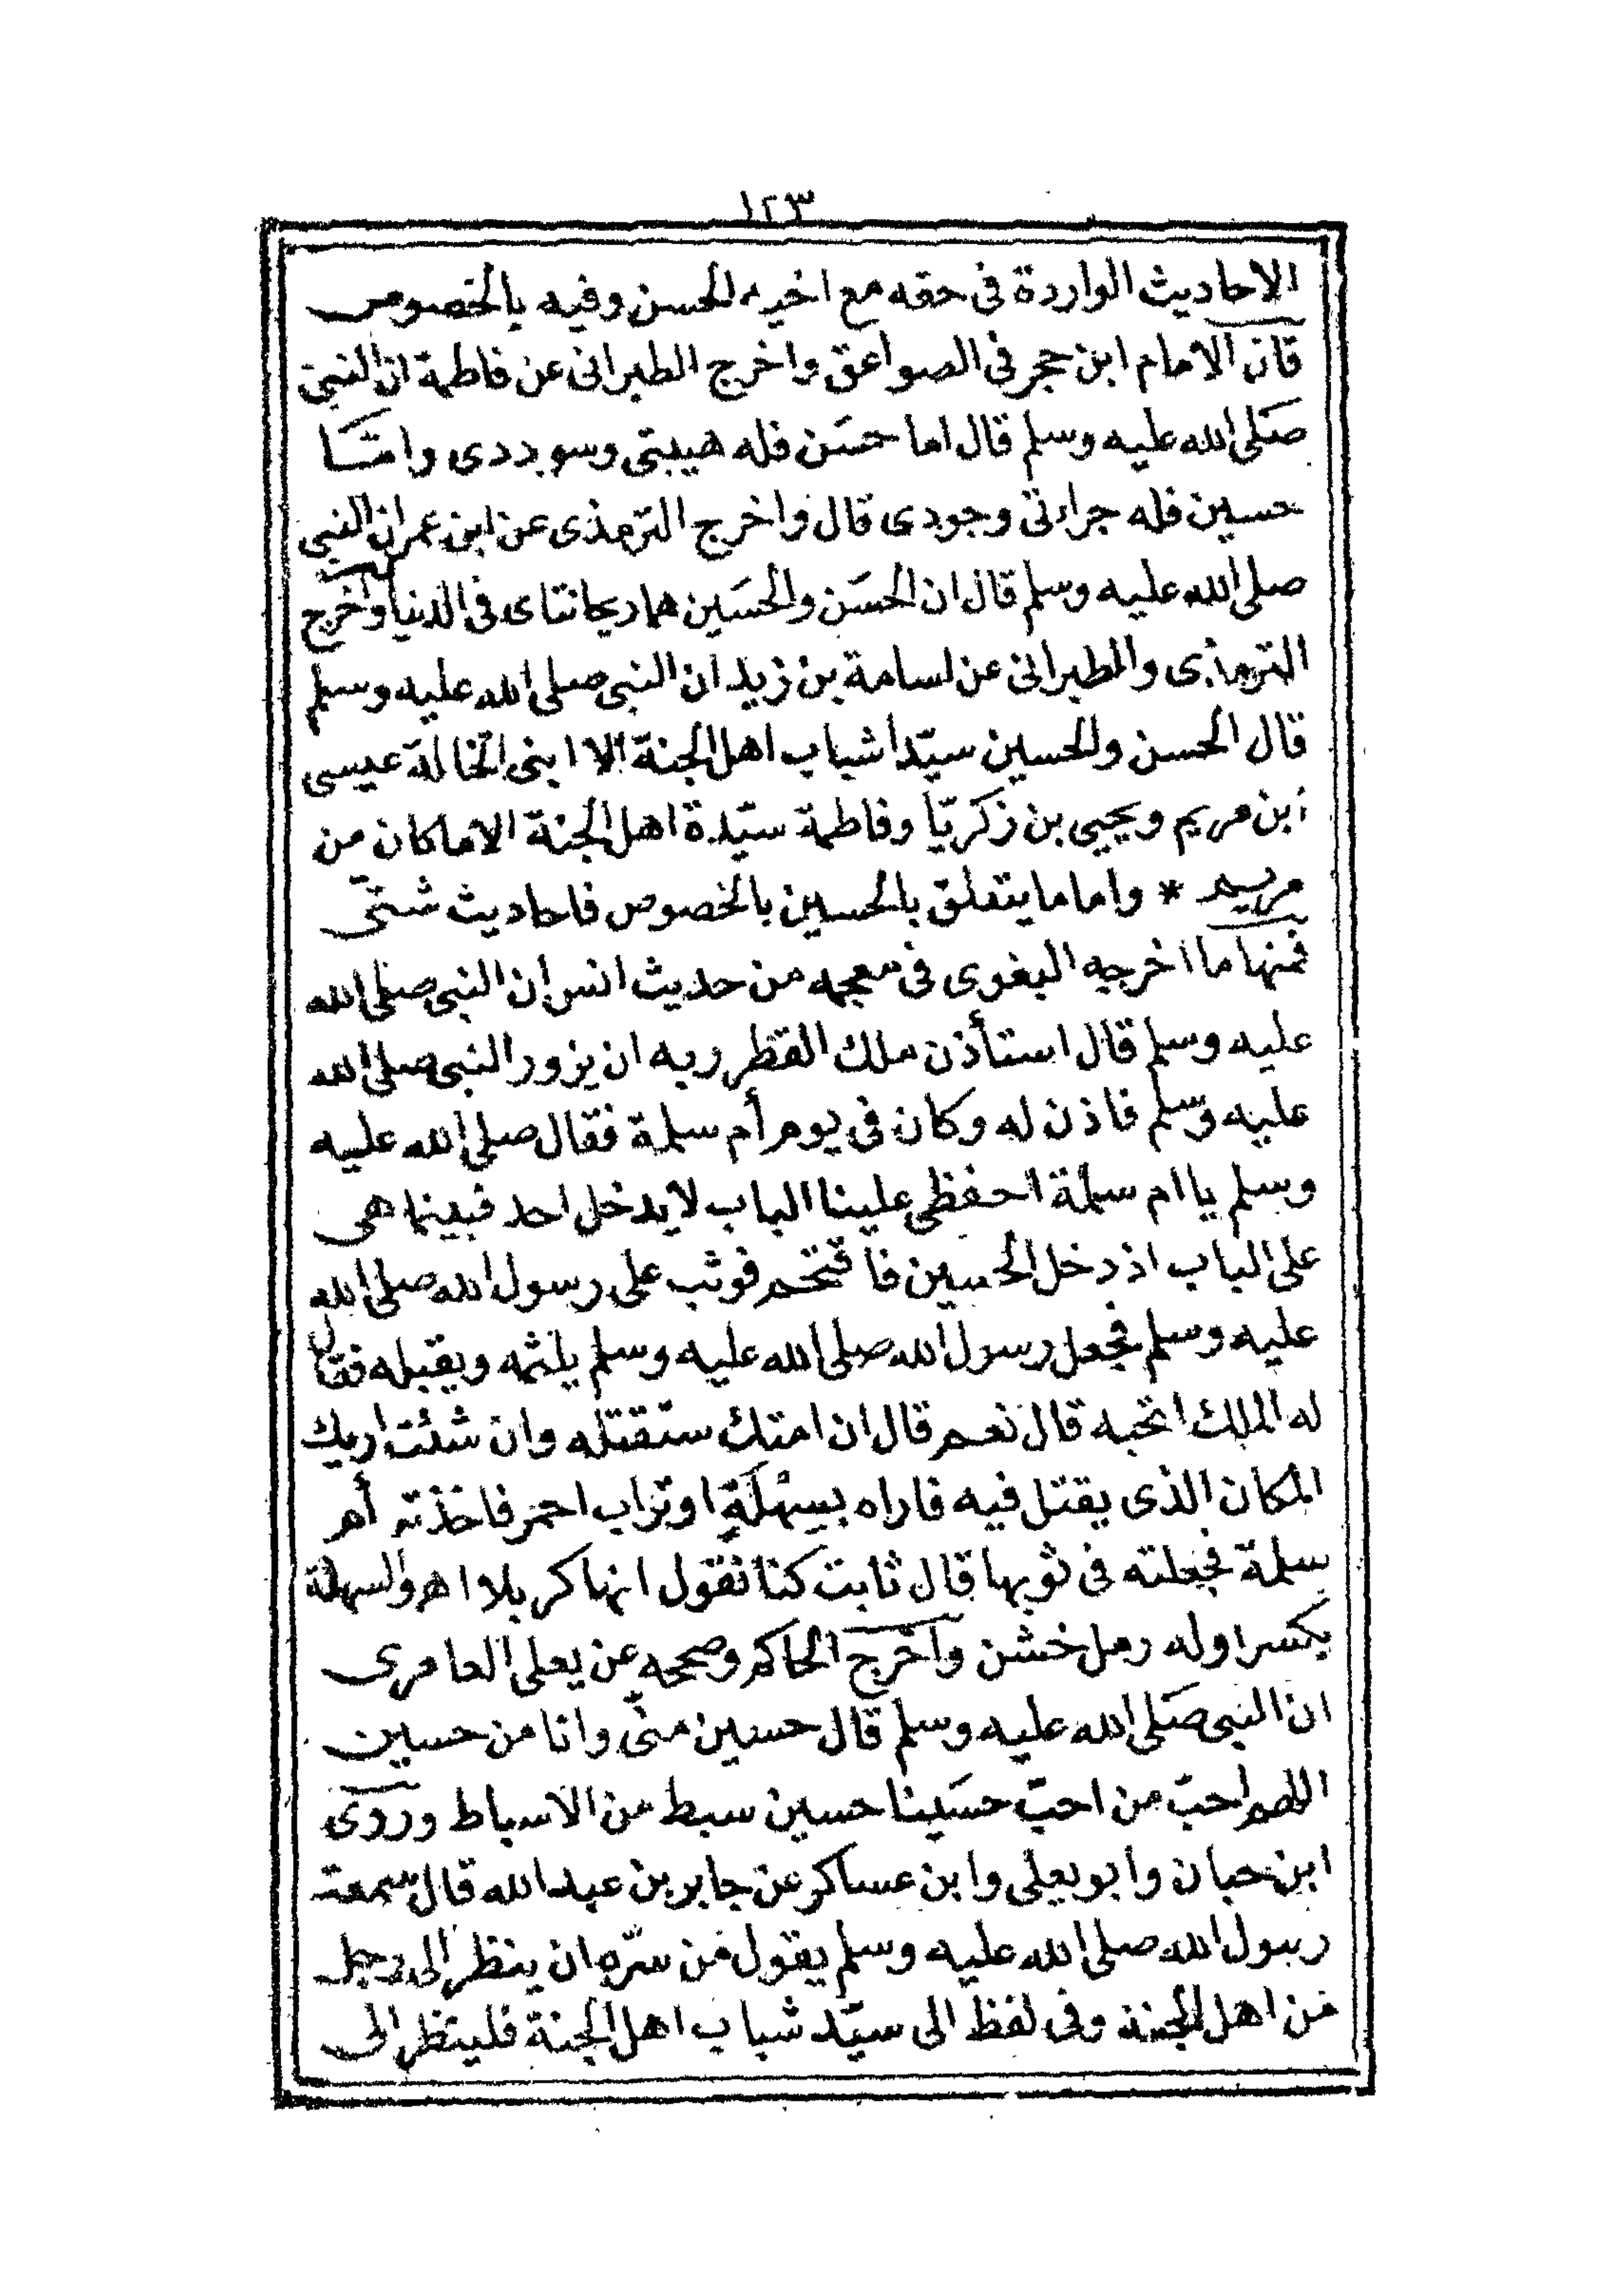 ١٢٣
الاحاديث الواردة فى حقه مع اخيه الحسن وفيه بالخصوص
قال الامام ابن حجر فى الصواعق واخرج الطبرانى عن فاطمة ان النبى
صَلى الله عليه وسلم قال اما حسَن فله هيبتى وسوددى وامّا
حسين فله جراءتى وجودى قال واخرج الترمذى عن ابن عمر ان النبى
صلى الله عليه وسلم قال ان الحسَن والحسَين هما ريحانتاى فى الدنيا واخرج
الترمذى والطبرانى عن اسامة بن زيد ان النبى صلى الله عليه وسلم
قال الحسن والحسين سيّدا شباب اهل الجنة الا ابنى الخالة عيسى
ابن مريم ويحيى بن زكريّا وفاطمة سيّدة اهل الجنة الا ما كان من
مريم * واما ما يتعلق بالحسين بالخصوص فاحاديث شتّى
فمنها ما اخرجه البغوى فى معجمه من حديث انس ان النبى صلى الله
عليه وسلم قال استأذن ملك القطر ربه ان يزور النبى صلى الله
عليه وسلم فاذن له وكان فى يوم أم سلمة فقال صلى الله عليه
وسلم يا ام سلمة احفظى علينا الباب لا يدخل احد فبينما هى
على الباب اذ دخل الحسين فاقتحم فوثب على رسول الله صلى الله
عليه وسلم فجعل رسول الله صلى الله عليه وسلم يلثمه ويقبله فقال
له الملك اتحبه قال نعم قال ان امتك ستقتله وان شئت اريك
المكان الذى يقتل فيه فاراه بسِهْلَةٍ او تراب احمر فاخذته أم
سلمة فجعلته فى ثوبها قال ثابت كنا نقول انها كربلا اهـ والسهلة
بكسر اوله رمل خشن واخرج الحاكم وصححه عن يعلى العامرى
ان النبى صَلى الله عليه وسلم قال حسين منّى وانا من حسين
اللهم احبّ من احبّ حسَينا حسين سبط من الاسباط وروى
ابن حبان وابو يعلى وابن عساكر عن جابر بن عبد الله قال سمعت
رسول الله صلى الله عليه وسلم يقول من سرّه ان ينظر الى رجل
من اهل الجنة وفى لفظ الى سيّد شباب اهل الجنة فلينظر الى